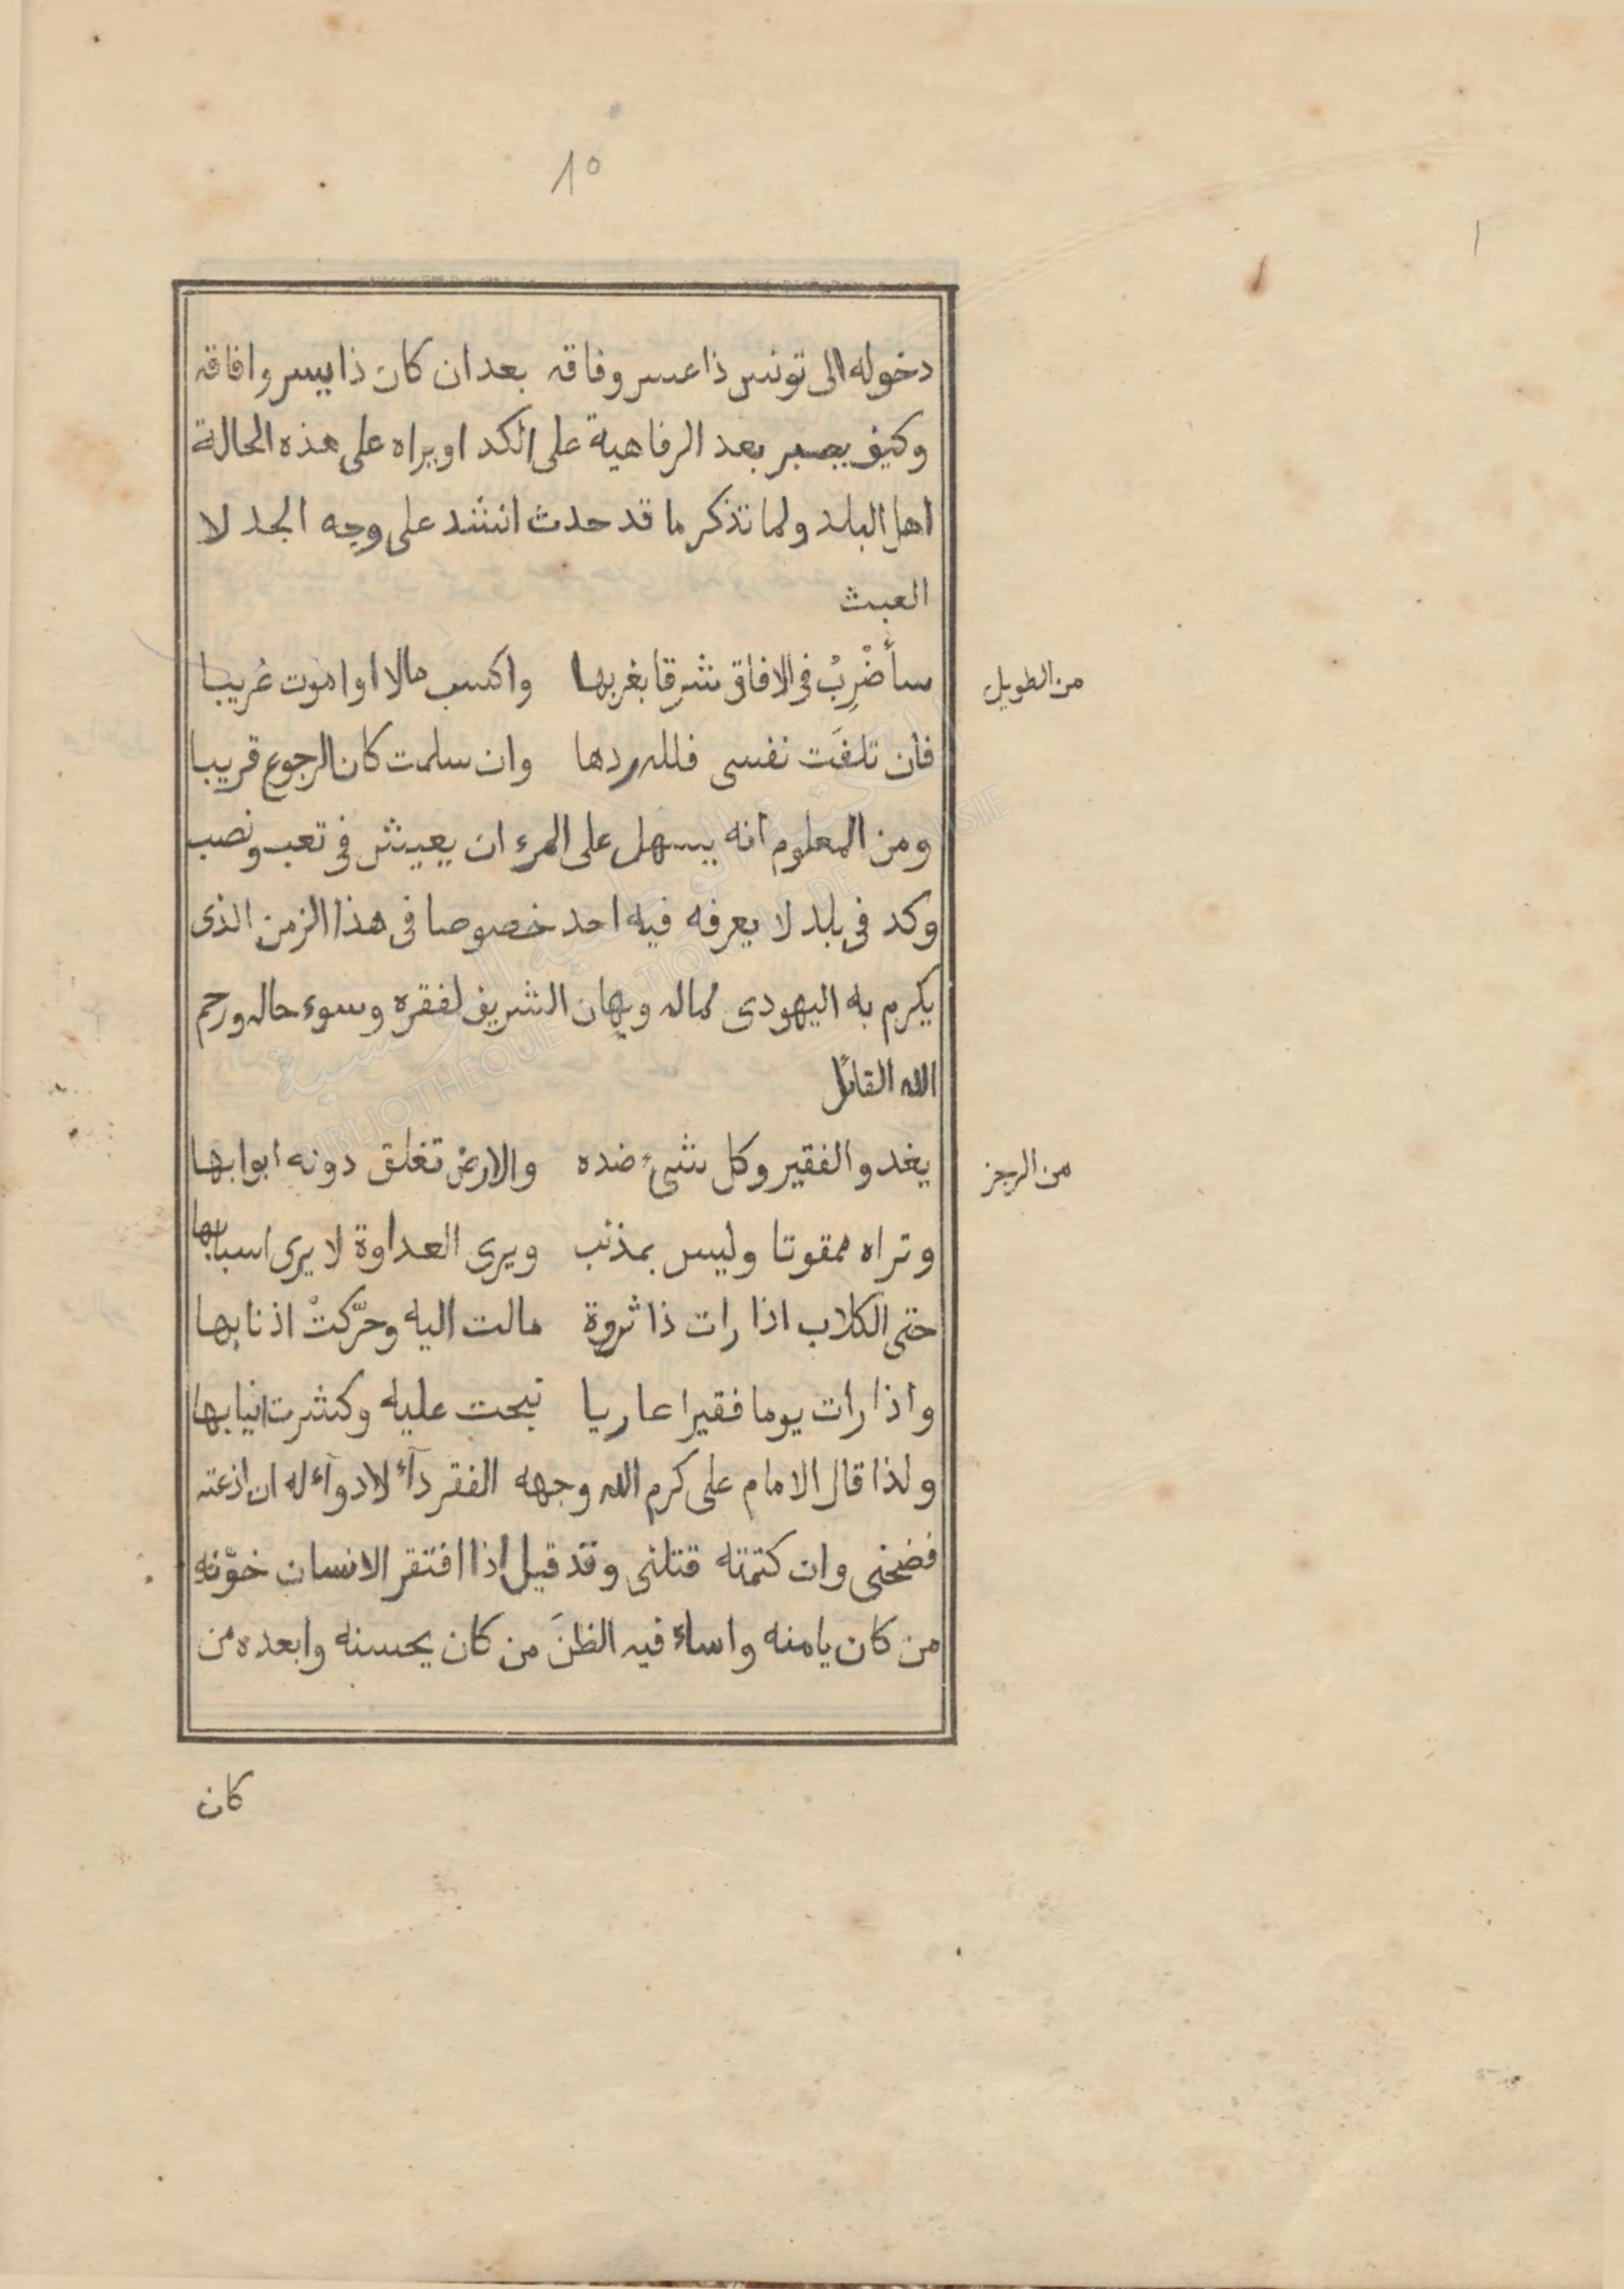 ١٥
دخوله الى تونس ذا عسر وفاقه بعد ان كان ذا يسر وافاقه
وكيف يصبر بعد الرفاهية على الكد او يراه على هذه الحالة
اهل البلد ولما تذكر ما قد حدث انشد على وجه الجد لا
العبث
من الطويل
سأضْرِبُ فى الافاق شرقا بغربها واكسب مالا او اموت غريبا
فان تلفَت نفسى فلله ردها وان سلمت كان الرجوع قريبا
ومن المعلوم انه يسهل على المرء ان يعيش فى تعب ونصب
وكد فى بلد لا يعرفه فيه احد خصوصا فى هذا الزمن الذى
يكرم به اليهودى لماله ويهان الشريف لفقره وسوء حاله ورحم
الله القائل
من الرجز
يغدو الفقير وكل شىء ضده والارض تغلق دونه ابوابها
وتراه ممقوتا وليس بمذنب ويرى العداوة لا يرى اسبابها
حتى الكلاب اذا رات ذا ثروة مالت اليه وحرّكتْ اذنابها
واذا رات يوما فقيرا عاريا نبحت عليه وكشرت انيابها
ولذا قال الامام على كرم الله وجهه الفقر دآء لا دوآء له ان اذعته
فضحنى وان كتمته قتلنى وقد قيل اذا افتقر الانسان خوّنه
من كان يامنه واساء فيه الظنَ من كان يحسنه وابعده من
كان
المكتبة الوطنية التونسية
BIBLIOTHEQUE NATIONALE DE TUNISIE